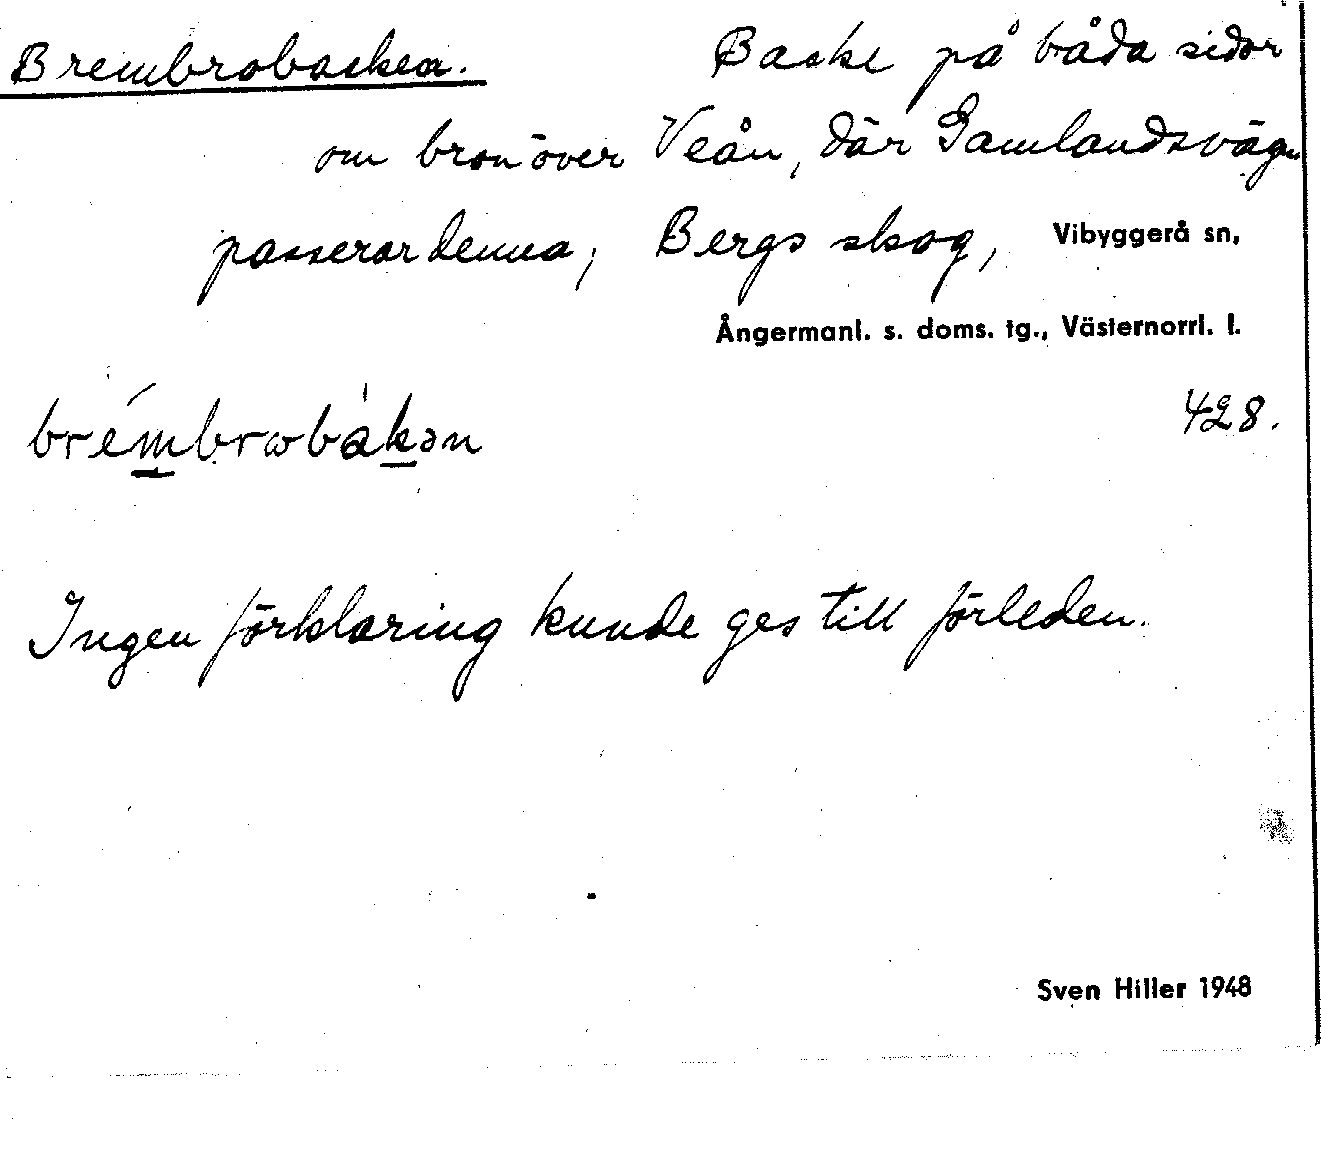 Brembrobacken. Backe på båda sidor
om bron över Veån, där Gamlandsvägen
passerar denna; Bergs skog, Vibyggerå sn,
Ångermanl. s. doms. tg., Västernorrl. l.
brémbrωbàkən 428.
Ingen förklaring kunde ges till förleden.
Sven Hiller 1948